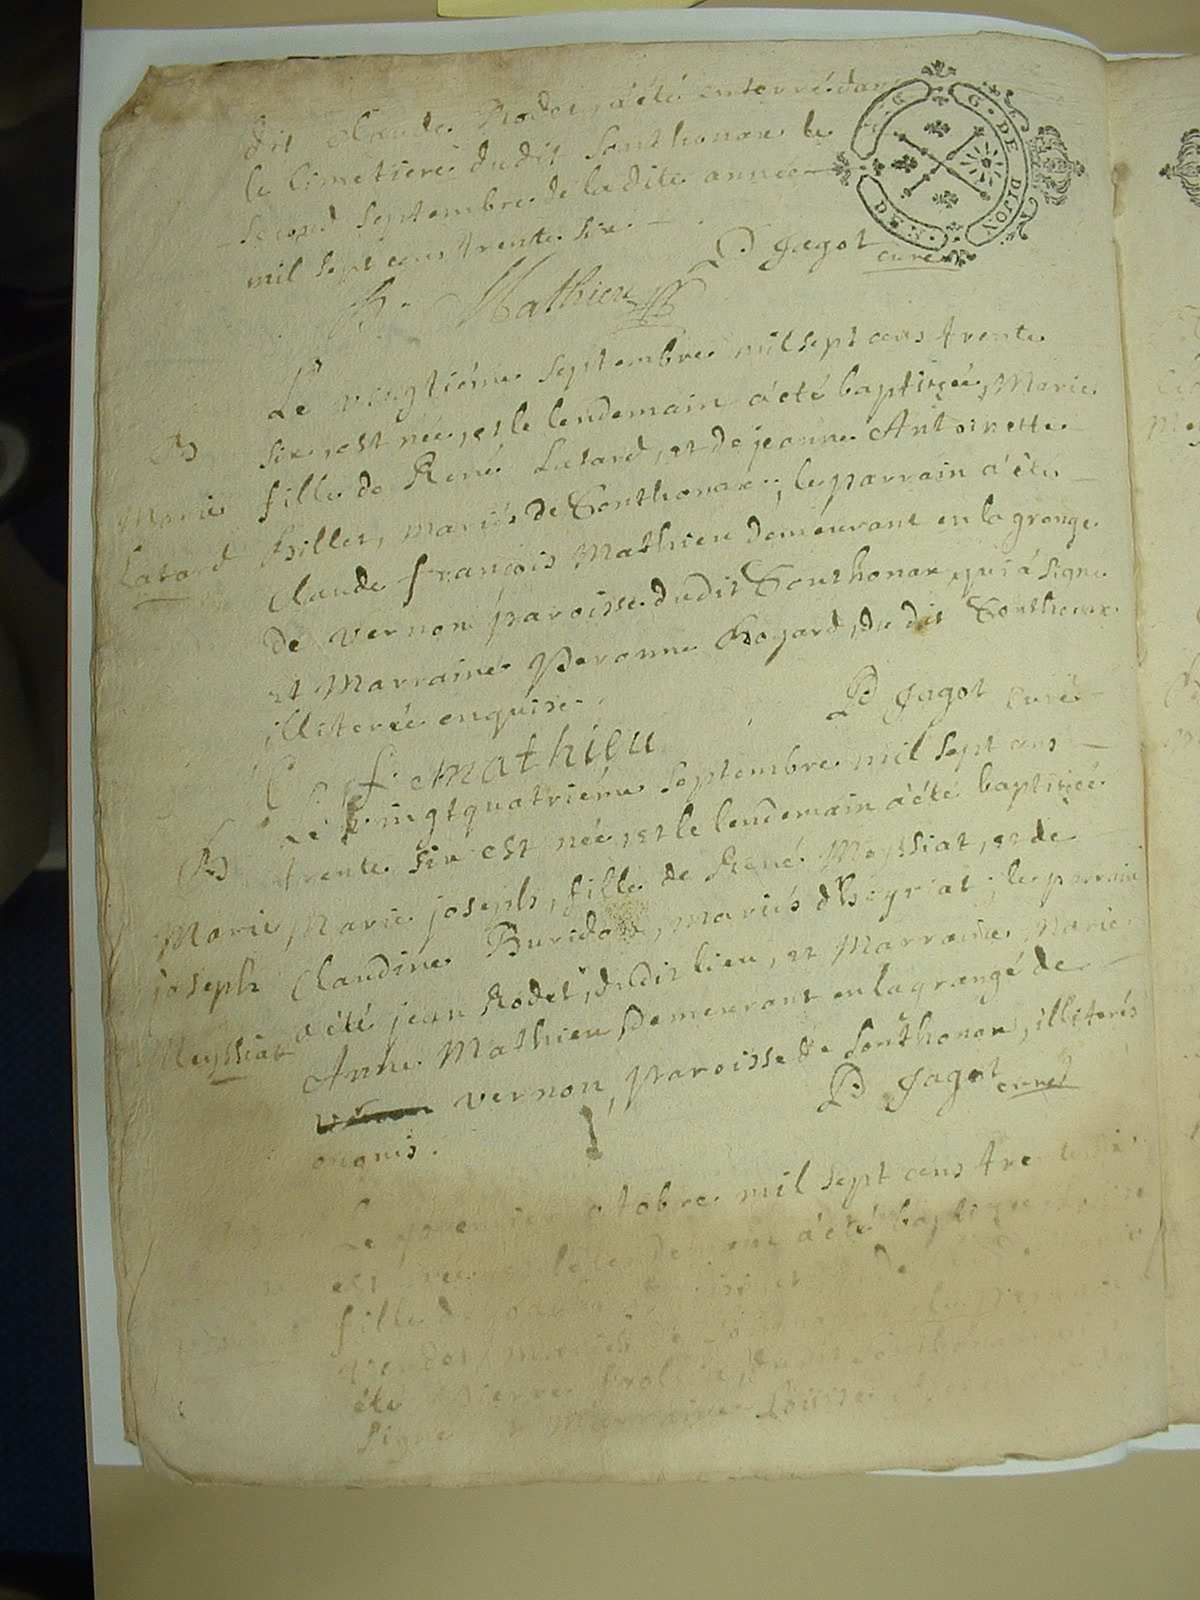 dit Claude Rodet, a été enterré dans
le Cimetiere dudit Sonthonax le
Second Septembre de ladite année
mil sept cens trente six.
G. DE DIJON
DEN.
P Jagot curé
Mathieu
Le vingtiéme Septembre mil sept cens trente
B six, est née, et le lendemain a été baptisée, Marie
Marie fille de René Latard, et de jeanne Antoinette
Latard hillet, mariés de Sonthonax; le parrain a été
Claude françois Mathieu demeurant en la grange
de vernon paroisse dudit Sonthonax qui a signé
et Marraine Peronne Bogard, du dit Sonthonax
illiterée enquise.
P Jagot curé
C. f. mathieu
Le vingtquatriéme Septembre mil sept cens
B trente six est née, et le lendemain a été baptisée
Marie Marie joseph, fille de René Meyssiat, et de
joseph Claudine Buridon, mariés d'heyriat; le parrain
Meyssiat a été jean Rodet, dudit lieu, et Marraine Marie
Anne Mathieu demeurant en la grange de
vernon, paroisse de Sonthonax, illiterés
enquis.
P Jagot curé
Le premier octobre mil sept cens trente six
est née, et le lendemain a été baptisée
fille de
mariés de Sonthonax, le Parrain
été Pierre dudit Sonthonax
signé et Marraine Louise